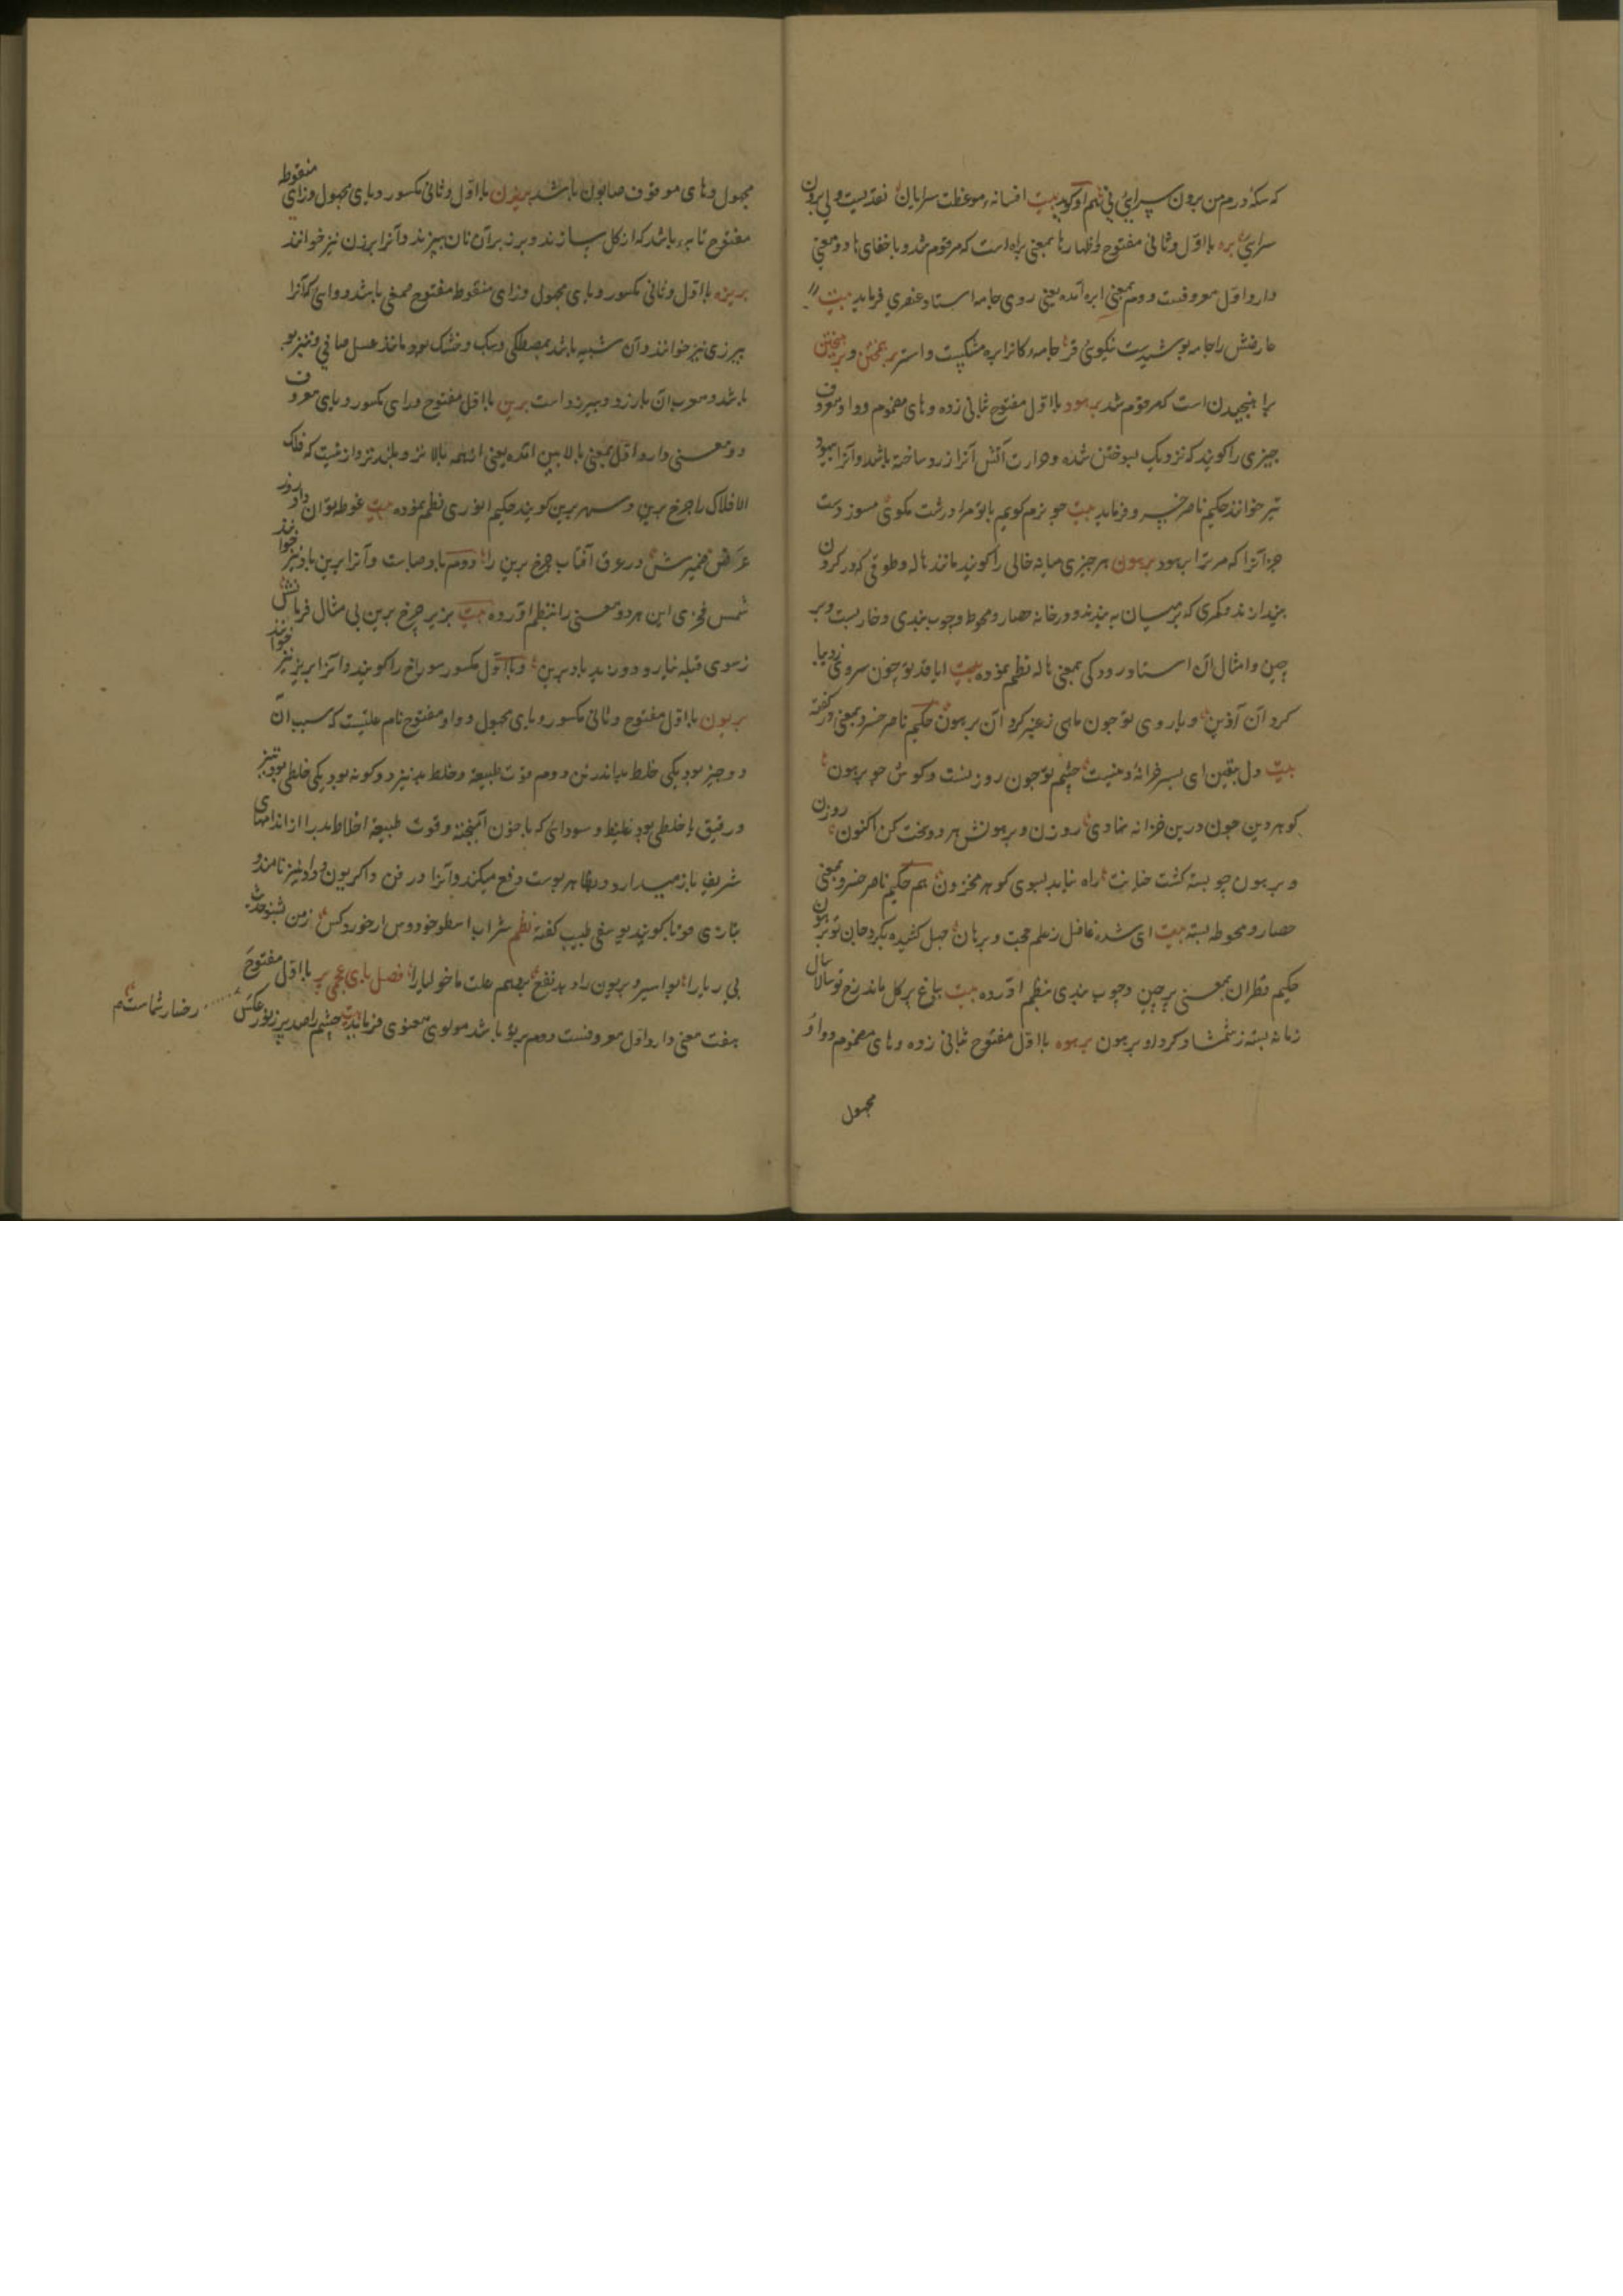 که سکه درم من برون سرایی نی هم او گوید بیت افسانه و موعظت سرایان نقدیست ولی برون
سرایی بره با اول و ثانی مفتوح و اظهار ها بمعنی براه است که مرقوم شد و با خفای ها دو معنی
دارد اول معروفست و دوم بمعنی ابره آمده یعنی روی جامه استاد عنصری فرماید بیت
عارضش را جامه پوشیدست نیکوئی و فر جامه کانرا ابره مشکیست و آستر
برا هنجیدن است که مرقوم شد برهود با اول مفتوح ثانی زده و های مضموم و واو معروف
چیزی را گویند که نزدیک بسوختن شده و حرارت آتش آنرا زرد ساخته باشد و آنرا بیهود
نیز خوانند حکیم ناصر خسرو فرماید بیت جو نرم گویم با تو مرا درشت مگوی مسوز دست
جز آنرا که مر ترا برهود برهون هر چیزی میانه خالی را گویند مانند هاله و طوقی که در گردن
بیندازند و کمری که بر میان به بندند و در خانه حصار و محوطه و چوب بندی و خاربست و بر
چین و امثال آن استاد رودکی بمعنی هاله نظم نموده بیت ایا قد تو چون سروی ز دیبا
گرد آن آذین و یا روی تو چون ماهی ز عنبر گرد آن برهون حکیم ناصر خسرو بمعنی در گفته
بیت دل یقین ای پسر خزانه دینست چشم تو چون روزنست و گوش چو برهون
گوهر دین چون درین خزانه نهادی روزن و برهونش هر دو سخت کن اکنون روزن
و برهون چو بسته گشت خیانت راه نیابد بسوی گوهر مخزون هم حکیم ناصر خسرو بمعنی
حصار و محوطه بسته بیت ای شده غافل ز علم حجت و برهان جهل کشیده بگرد جان تو برهون
حکیم قطران بمعنی پرچین و چوب بندی بنظم آورده بیت بباغ پر گل ماند رخ تو سال
زمانه بسته ز شمشاد گرد او برهون برهوه با اول مفتوح ثانی زده و های مضموم و واو
مجهول
مجهول و های موقوف صابون باشد بریزن با اول و ثانی مکسور و یای مجهول و زای منقوطه
مفتوح تابه باشد که از گل بسازند و بر زبر آن نان بپزند و آنرا برزن نیز خوانند
بریزه با اول و ثانی مکسور و یای مجهول و زای منقوط مفتوح صمغی باشد دوائی که آنرا
بیرزی نیز خوانند و آن شبیه باشد بمصطکی و سبک و خشک بود مانند عسل صافی و تیز بو
باشد و معرب آن بارزد و بیرزد است برین با اول مفتوح و رای مکسور و یای معروف
دو معنی دارد اول بمعنی بالایین آمده یعنی از همه بالاتر و بلندتر و از نیست که فلک
الافلاک را چرخ برین و سپهر برین گویند حکیم انوری نظم نموده بیت غوطه توان داد روز
عرض ضمیرش در عرق آفتاب چرخ برین را دوم باد صبا ست و آنرا برین باد نیز خوانند
شمس فخری این هر دو معنی را بنظم آورده بیت بزیر چرخ برین بی مثال فرمانش
ز سوی قبله نیارد وزید باد برین و با اول مکسور سوراخ را گویند و آنرا بریز نیز خوانند
بریون با اول مفتوح و ثانی مکسور و یای مجهول و واو مفتوح نام علتیست که سبب آن
دو چیز بود یکی خلط بد اندر تن دوم قوت طبیعة و خلط بد نیز دو گونه بود یکی خلطی بود تیز
و رقیق یا خلطی بود غلیظ و سودائی که با خون آمیخته و قوت طبیعة اخلاط بد را از اندامهای
شریف باز میدارد و بظاهر پوست دفع میکند و آنرا درفن و اگریون و داد نیز نامند و
بتازی قوبا گویند یوسفی طبیب گفته نظم شراب اسطوخودوس ار خورد کس ز من بشنو حدیث
بی ریا را بواسیر و بریون را دهد نفع برد هم علت ماخولیا را فصل بای عجمی پر با اول مفتوح
هفت معنی دارد اول معروفست دوم پرتو باشد مولوی معنوی فرماید بیت چشم را صد پر ز نور عکس
رخسار شماست